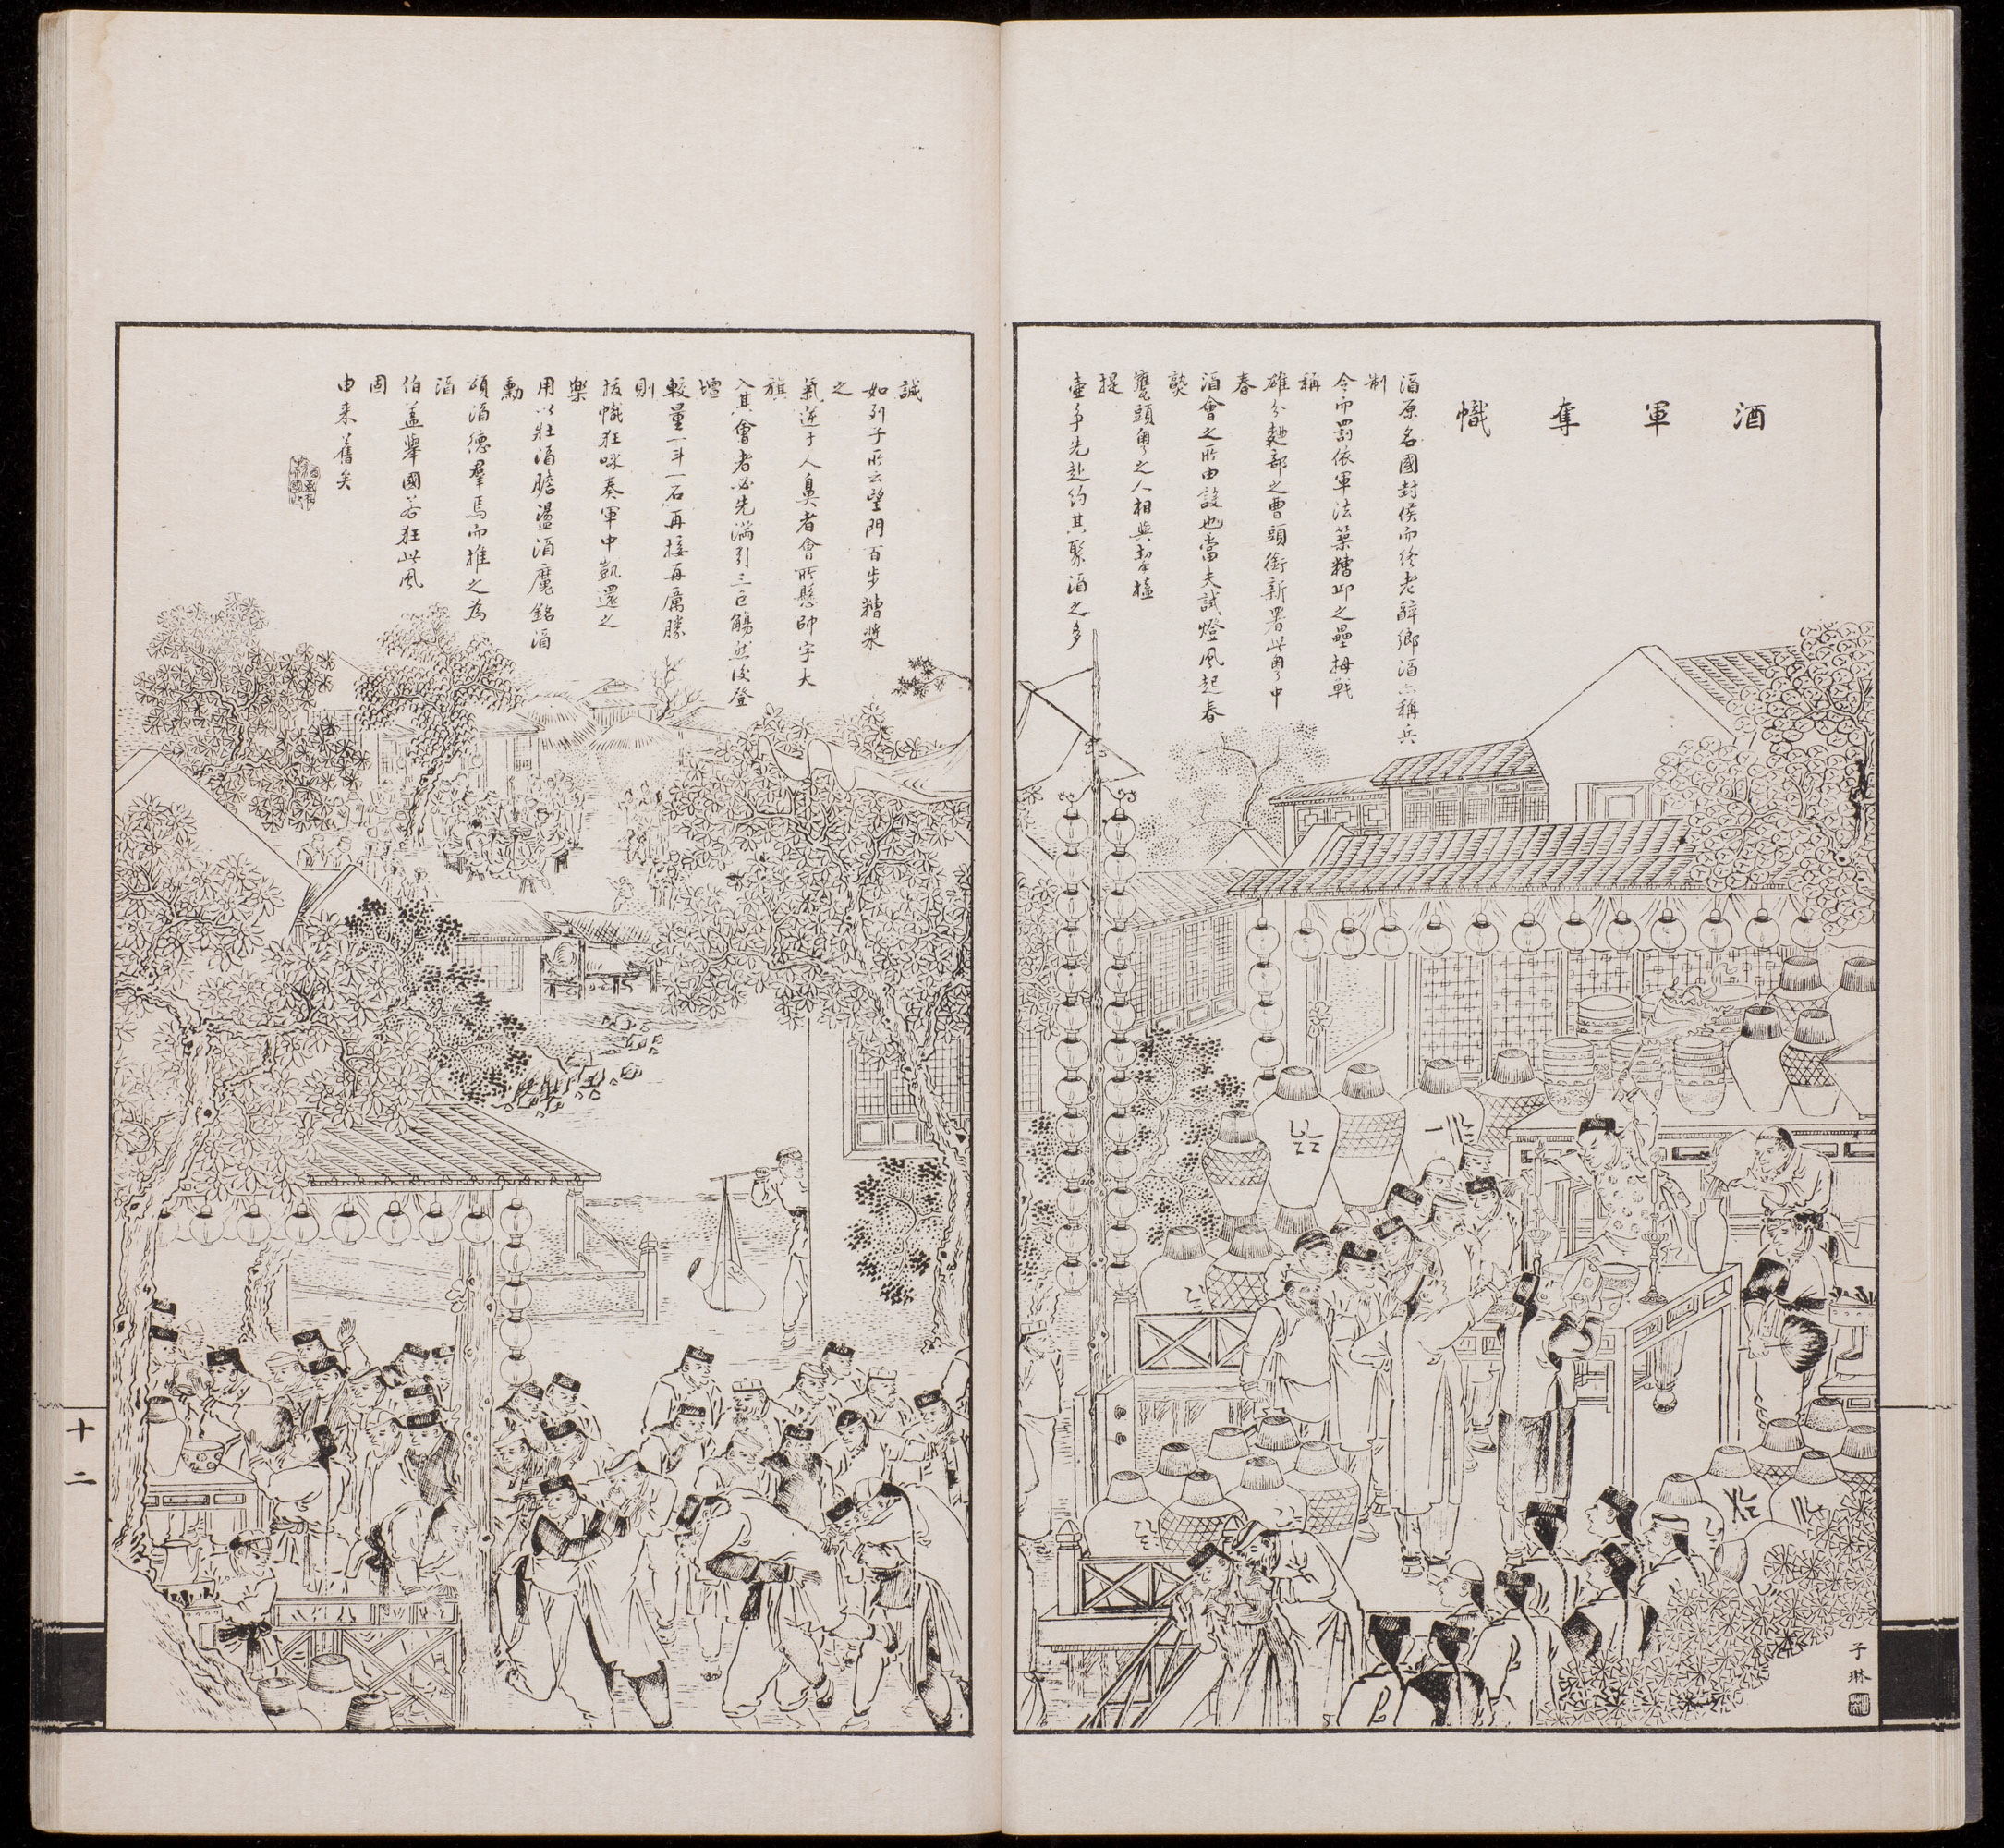 酒軍奪幟
酒原名國封侯而終老醉鄉酒亦稱兵
制
令而罰依軍法築糟邱之壘拇戰
稱
雄分麯部之曹頭銜新署此甬中
春
酒會之所由設也當夫試燈風起春
熟
甕頭甬之人相與挈榼
提
壺爭先赴約其聚酒之多
誠
如列子所云望門百步糟漿
之
氣逆于人鼻者會所懸帥字大
旗
入其會者必先滿引三巨觴然後登
壇
較量一斗一石再接再厲勝
則
拔幟狂咪奏軍中凱還之
樂
用以壯酒膽盪酒魔銘酒
勳
頌酒德羣焉而推之為
酒
伯蓋舉國若狂此風
固
由來舊矣
子琳
十二